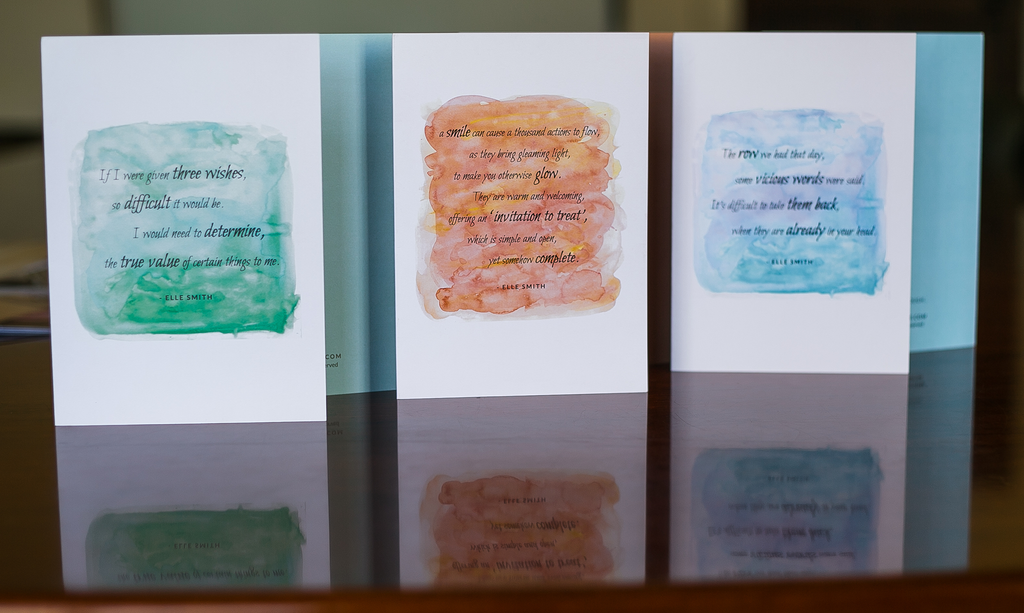 If I were given three wishes,
so difficult it would be.
I would need to determine,
the true value of certain things to me.
- ELLE SMITH
a smile can cause a thousand actions to flow,
as they bring gleaming light,
to make you otherwise glow.
They are warm and welcoming,
offering an 'invitation to treat',
which is simple and open,
yet somehow complete.
- ELLE SMITH
The row we had that day,
some vicious words were said.
It's difficult to take them back,
when they are already in your head.
- ELLE SMITH